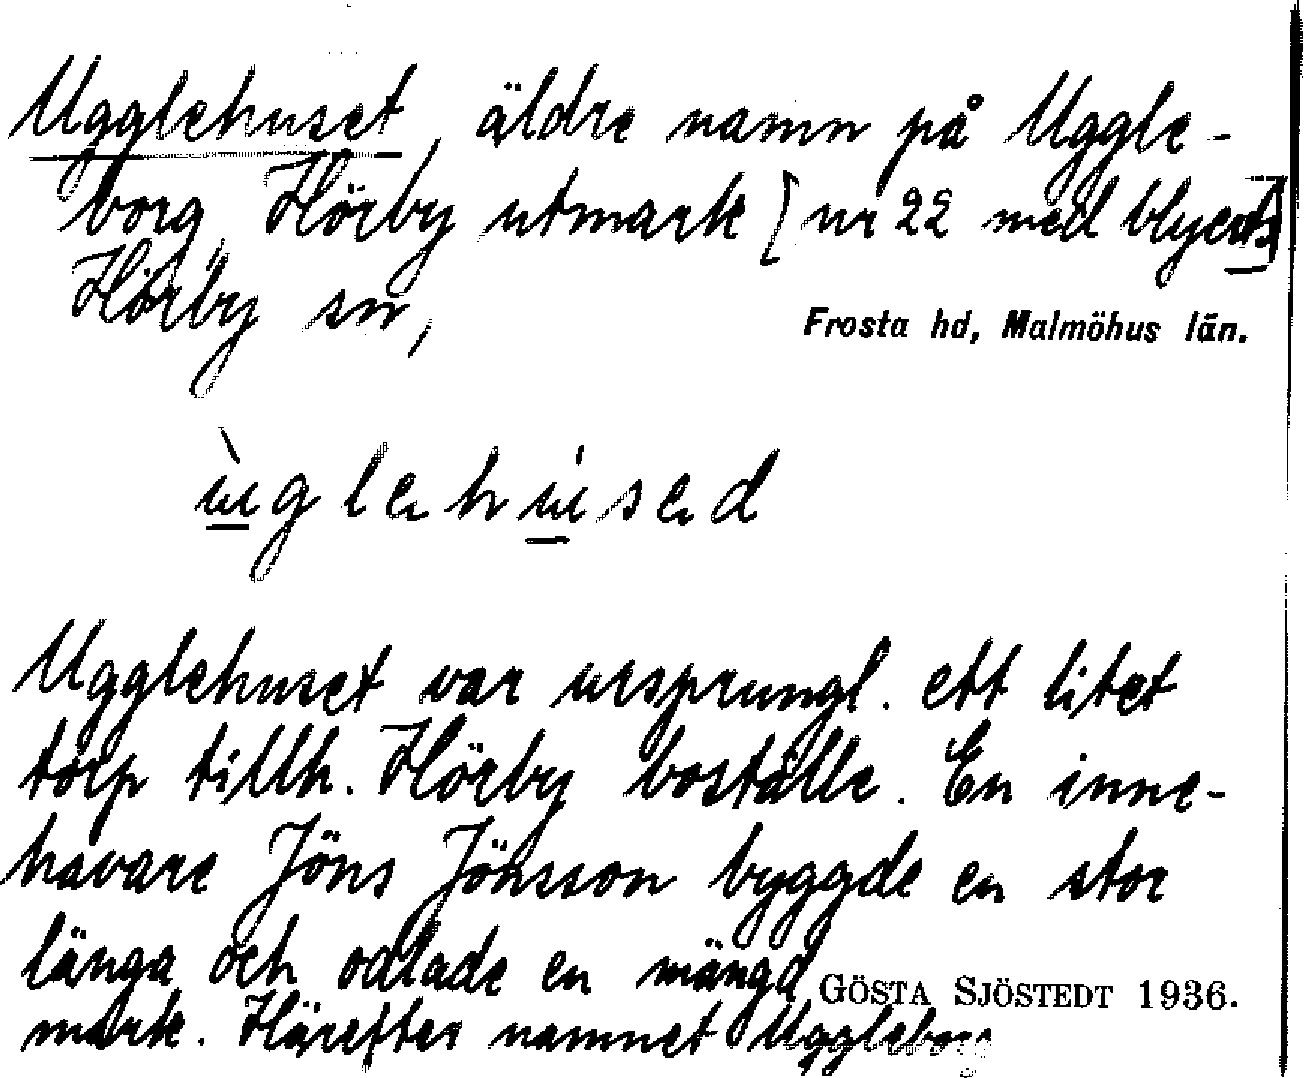 Ugglehuset, äldre namn på Uggle-
borg, Hörby utmark [nr 22 med blyerts]
Hörby sn,
Frosta hd, Malmöhus län.
ùglehúsed
Ugglehuset var ursprungl. ett litet
torp tillh. Hörby boställe. En inne-
havare Jöns Jönsson byggde en stor
länga och odlade en mängd
GÖSTA SJÖSTEDT 1936.
mark. Härefter namnet Uggleborg